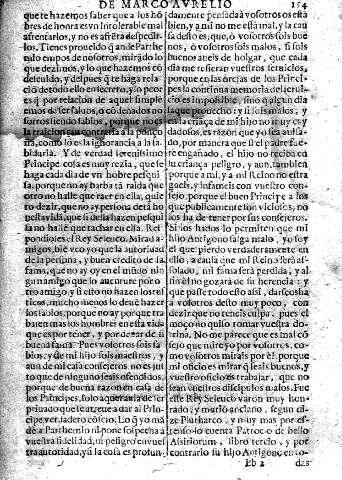 DE MARCO AVRELIO
154
que te hazemos saber que a los hō
bres de honra es vn intolerable mal
afrentarlos, y no es afrēta despedir
los. Tienes proueido q̄ ande Parthe
mio empos de nosotros, mirādo lo
que dezimos, y lo que hazemos cō
descuido, y despues q̄ te haga rela
ciō de todo ello en secreto, y lo peor
es q̄ por relacion de aquel simple
emos de ser saluos, o cōdenados no
sotros siendo sabios, porque no es
la traicion tan contraria a la ponço
ña, como lo es la ignorancia a la sa
biduria. Y de verdad serenissimo
Principe cosa es muy rezia, que se
haga cada dia de vn hōbre pesqui
sa, porque no ay barba tā raida que
otro no halle que raer en ella, quie
ro dezir, que no ay persona de tā ho
nesta vida, que si della hazen pesqui
sa no hallē que tachar en ella. Res
pondioles el Rey Seleuco. Mirad a
migos, biē veo yo que la autoridad
de la persona, y buen credito de la
fama, que no ay oy en el mūdo nin
gun amigo que lo auenture por o
tro amigo, y si esto no hazen los rus
ticos, mucho menos lo deuē hazer
los sabios, porque no ay porque tra
bajen mas los hombres en esta vida
que es por tener, y por dexar de si
buena fama. Pues vosotros sois sa
bios, y de mi hijo sois maestros, y
aun de mi casa consejeros no es jus
to que de ninguno seais ofendidos,
porque de buena razon en casa de
los Principes, solo aquel auia de ser
priuado que se atreue a dar al Prin
cipe verdadero cōsejo. Lo q̄ yo mā
de a Parthemio ni pone sospecha a
vuestra fidelidad, ni peligro en vues
tra autoridad, y si la cosa es profun
damente pensada a vosotros os està
bien, y a mi no me està mal, y la cau
sa desto es, que, o vosotros sois bue
nos, o vosotros sois malos, si sois
buenos aueis de holgar, que cada
dia me refieran vuestros seruicios,
porque en las orejas de los Princi
pes la continua memoria del serui
cio es impossible, sino q̄ algun dia
no aprouecho: y si sois malos, y
en la criāça de mi hijo muy descuy
dados, es razon que yo sea auisa
do, por manera que si el padre fue
re engañado, el hijo no reciba en
su criança peligro, y aun tambien
porque a mi, y a mi Reino no esta
gueis, y infameis con vuestro con
sejo, porque el buen Principe a los
que publicamente son viciosos, no
los ha de tener por sus consejeros.
Si los hados lo permiten que mi
hijo Antigono salga malo, yo soy
el que pierdo verdaderamente en
ello, a causa que mi Reino serà as
solado, mi fama serà perdida, y al
fin el no gozarà de su herencia: y
que passe todo esto assi, darseos ha
a vosotros desto muy poco, con
dezir que no teneis culpa, pues el
moço no quiso tomar vuestra do
trina. No me parece que es mal cō
sejo que mire yo por vosotros, co
mo vosotros mirais por èl: porque
mi oficio es mirar q̄ seais buenos, y
vuestro oficio es trabajar, que no
sean vuestros discipulos malos. Fue
este Rey Seleuco varon muy hon
rado, y murio anciano, segun di
ze Plutharco, y muy mas por es
tenso lo cuenta Patroco de bello
Asiriorum, libro tercio, y por
contrario su hijo Antigono en to-
Bb 2
das